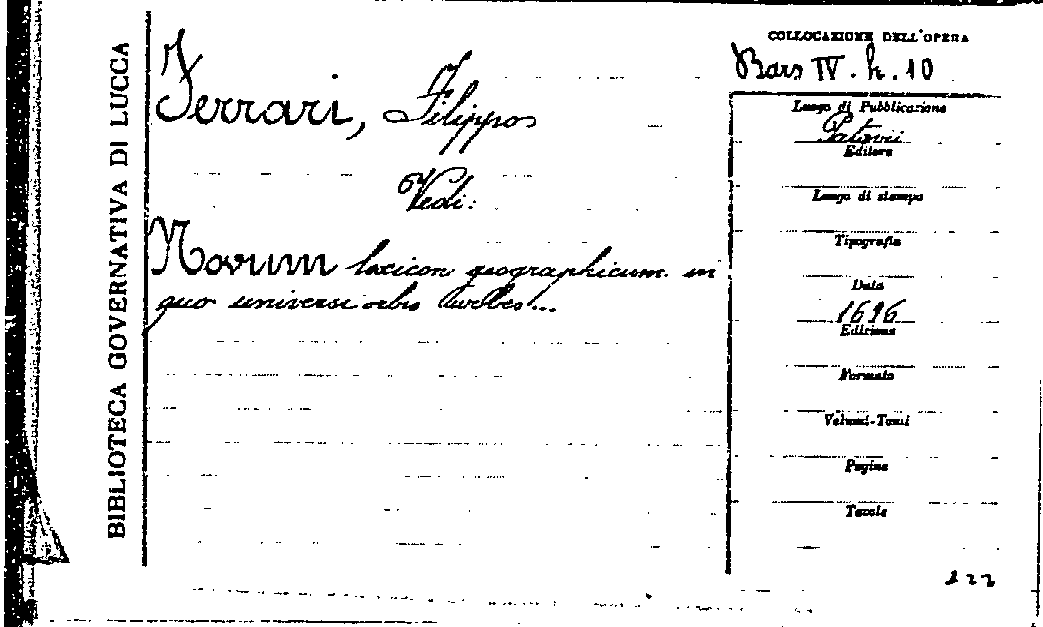 BIBLIOTECA GOVERNATIVA DI LUCCA
Ferrari, Filippo
Vedi:
Novum lexicon geographicum in
quo universi orbis urbes...
COLLOCAZIONE DELL'OPERA
Bars IV. h. 10
Luogo di Pubblicazione
Patavii
Editore
Luogo di stampa
Tipografia
Data
1696
Edizione
Formato
Volumi-Tomi
Pagine
Tavole
122